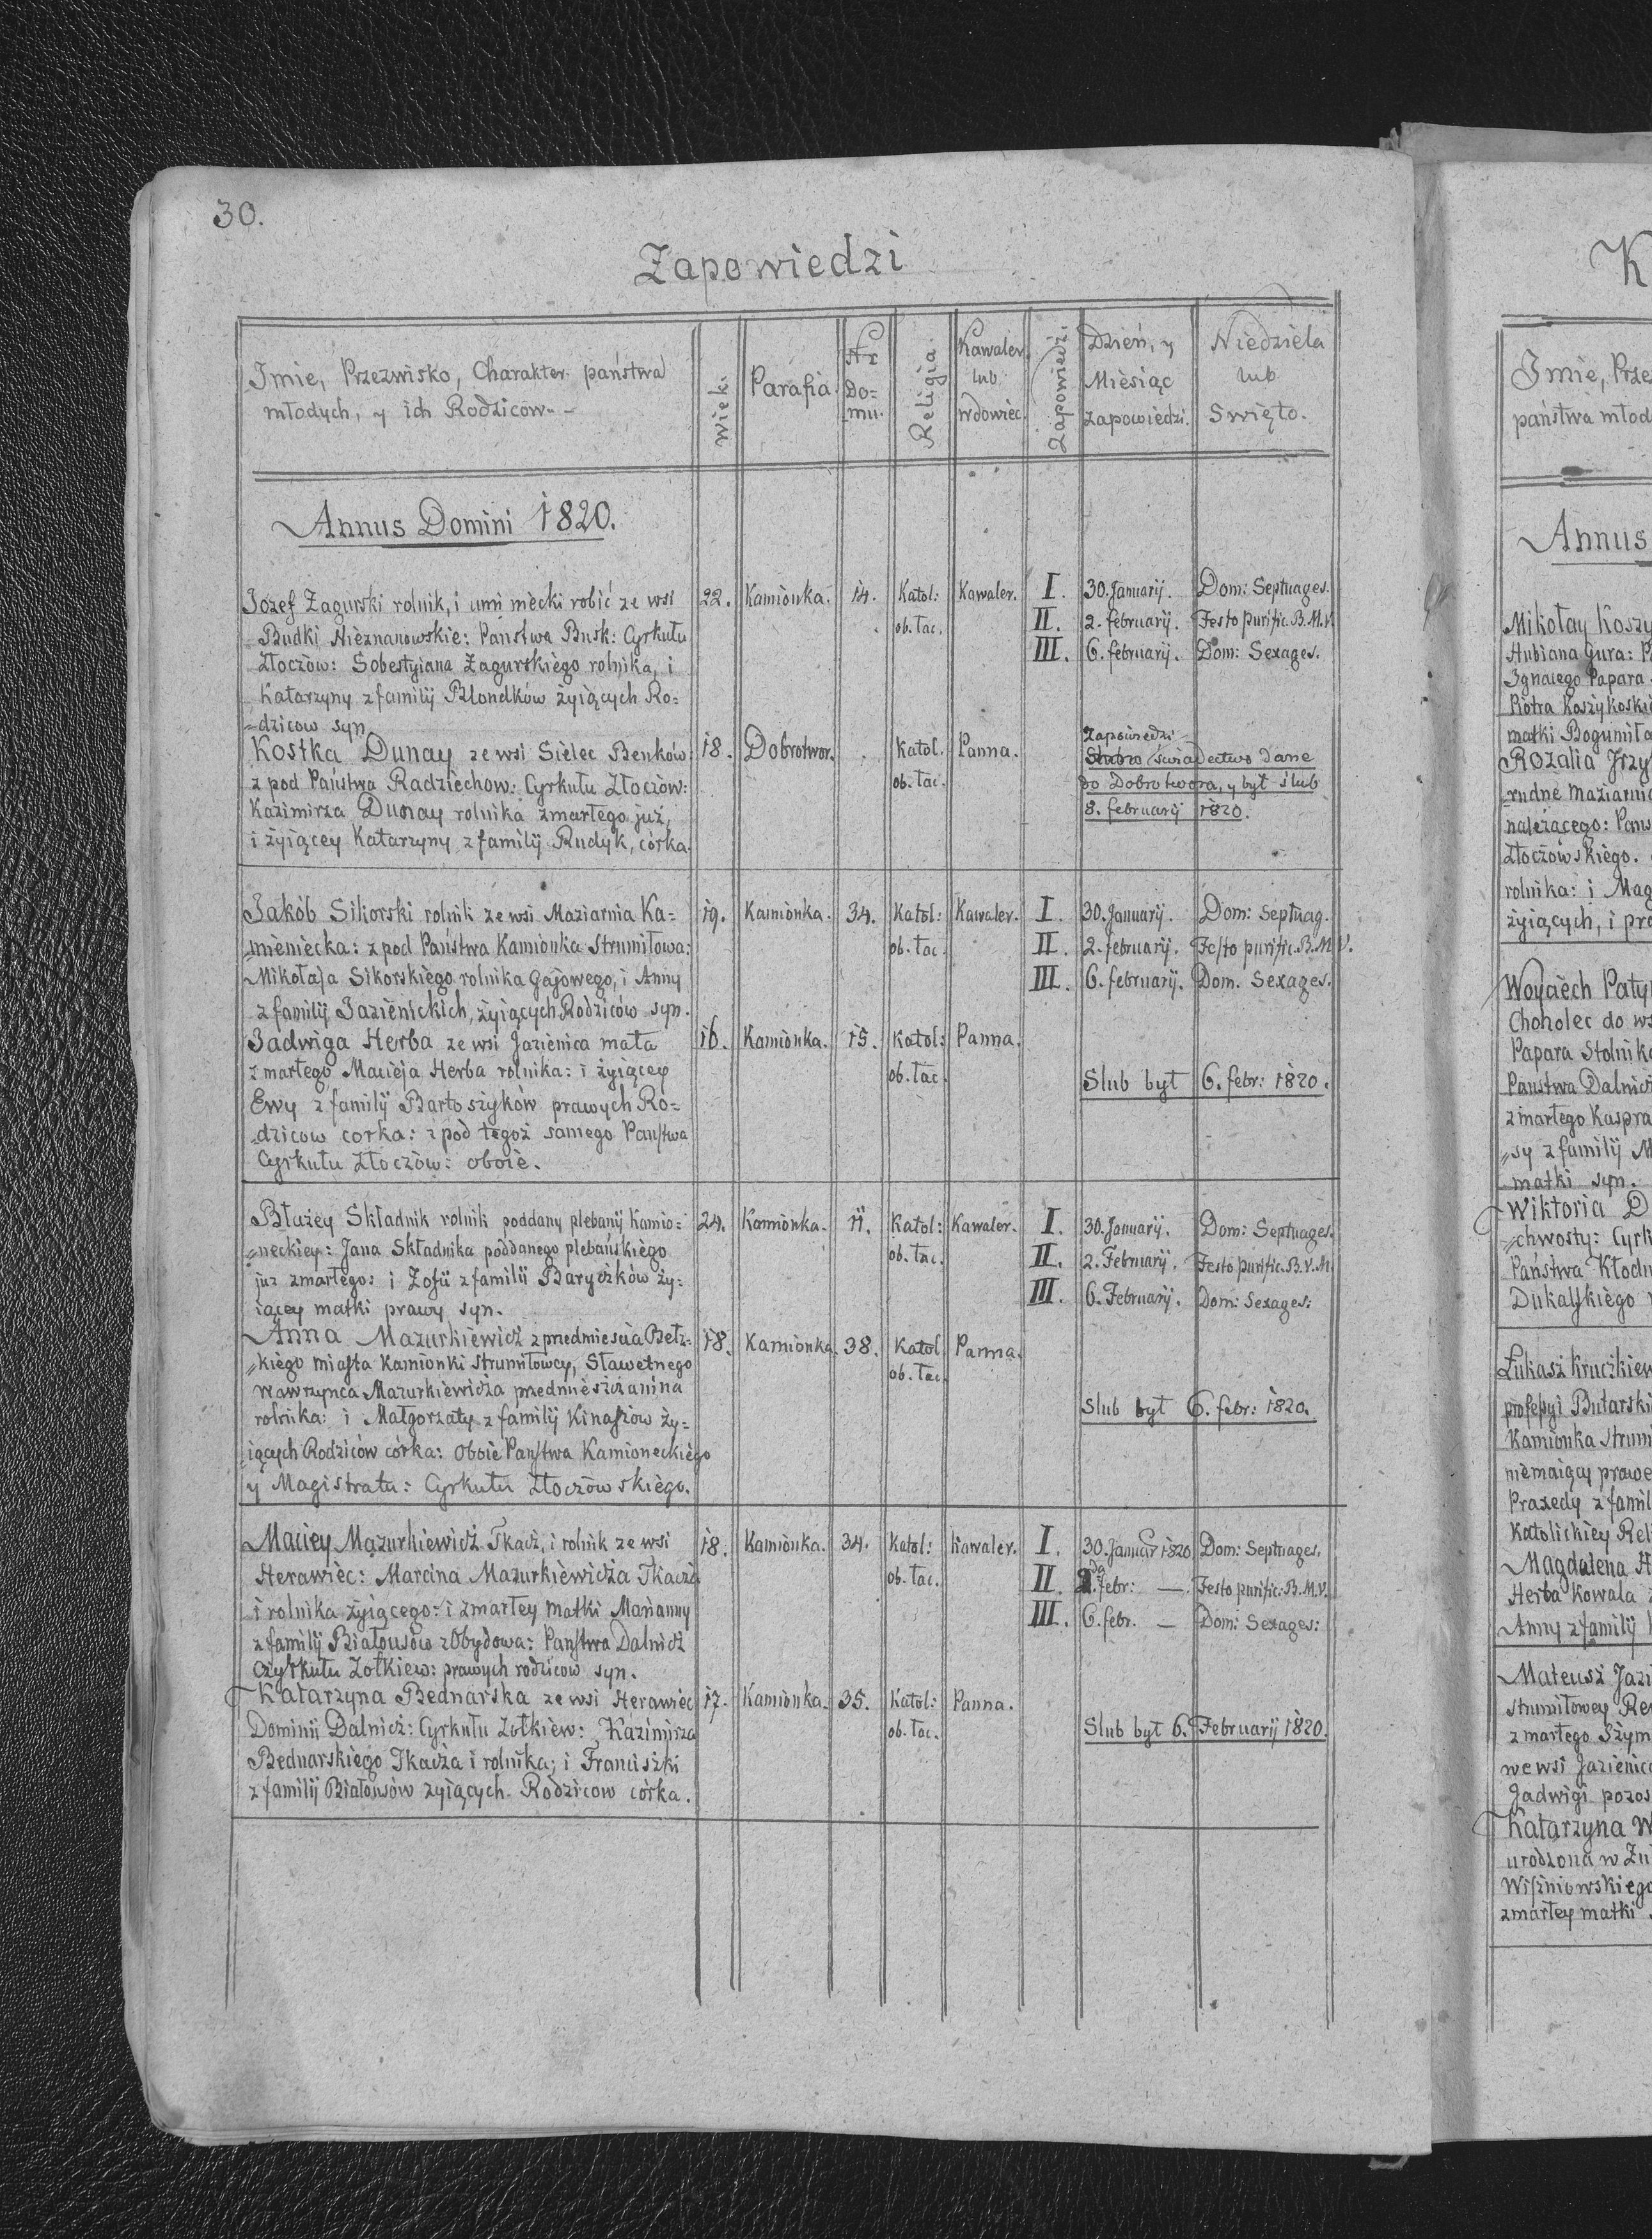 30.
Zapowiedzi
Imie, Przezwisko, Charakter państwa
młodych, y ich Rodziców.-
wiek.
Parafia
Nr
Do=
mu.
Religia.
Kawaler
lub
wdowiec.
Zapowiedzi.
Dzień, y
Miesiąc
zapowiedzi.
Niedziela
lub
Swięto.
Annus Domini 1820.
Jozef Zagurski rolnik, i umi miecki robić ze wsi 22. Kamionka. 14. Katol: Kawaler. I. 30. Januarij. Dom: Septuages.
Budki Nieznanowskie: Państwa Busk: Cyrkułu ob. łac. II. 2. februarij. Festo purific. B.M.V.
Złoczów: Sobestyiana Zagurskiego rolnika, i III. 6. februarij. Dom: Sexages.
Katarzyny z familij Blondków żyiących Ro=
=dzicow syn
Kostka Dunay ze wsi Sielec Benków: 18. Dobrotwor. Katol. Panna. Zapowiedzi
z pod Państwa Radziechow: Cyrkułu Złoczów: ob. łac. Slubro świadectwo dane
Kazimirza Dunay rolnika zmarłego już, do Dobrotwora, y był ślub
i żyiącey Katarzyny z familij Rudyk, córka. 8. februarij 1820.
Jakób Sikorski rolnik ze wsi Maziarnia Ka= 19. Kamionka. 34. Katol: Kawaler. I. 30. Januarij. Dom: Septuag.
=mieniecka: z pod Państwa Kamionka Strumiłowa: ob. łac. II. 2. februarij. Festo purific. B.M.V.
Mikołaja Sikorskiego rolnika Gajowego, i Anny III. 6. februarij. Dom. Sexages.
z familij Jazienickich, żyiących Rodziców syn.
Jadwiga Herba ze wsi Jazienica mała 16. Kamionka. 15. Katol: Panna.
zmarłego Macieja Herba rolnika: i żyiącey ob. łac. Slub był 6. febr: 1820.
Ewy z familij Bartoszyków prawych Ro=
=dzicow corka: z pod tegoż samego Państwa
Cyrkułu Złoczów: oboie.
Błużey Składnik rolnik poddany plebanij Kamio= 24. Kamionka. 11. Katol: Kawaler. I. 30. Januarij. Dom: Septuages.
=neckiey: Jana Składnika poddanego plebańskiego ob. łac. II. 2. Februarij. Festo purific. B.V.M.
już zmarłego: i Zofii z familii Baryczków ży= III. 6. Februarij. Dom: Sexages:
iącey matki prawy syn.
Anna Mazurkiewicz z przedmieścia Bełz= 18. Kamionka. 38. Katol Panna.
=kiego miasta Kamionki Strumiłowey, Sławetnego ob. łac.
Wawrzynca Mazurkiewicza przedmieszczanina
rolnika: i Małgorzaty z familij Kinaszow ży= Slub był 6. febr: 1820.
iących Rodziców córka: Oboie Państwa Kamioneckiego
y Magistratu: Cyrkułu Złoczowskiego.
Maciey Mazurkiewicz Tkacz, i rolnik ze wsi 18. Kamionka. 34. Katol: Kawaler. I. 30. Januar 1820 Dom: Septuages.
Herawiec: Marcina Mazurkiewicza Tkacza ob. łac. II 2da febr: — Festo purific: B.M.V.
i rolnika żyiącego: i zmarłey matki Marianny III. 6. febr. — Dom: Sexages:
z familij Białousów z Obydowa: Państwa Dalnicz
Czyrkułu Zołkiew: prawych rodziców syn.
Katarzyna Bednarska ze wsi Herawiec 17. Kamionka. 35. Katol: Panna.
Dominij Dalnicz: Cyrkułu Zołkiew: Kazimirza ob. łac. Slub był 6. Februarij 1820.
Bednarskiego Tkacza i rolnika; i Franciszki
z familij Białousów żyiących Rodzicow córka.
K
Imie, Prze
państwa młod
Annus
Mikołay Koszy
Hubiana Gura: P
Ignacego Papara
Piotra Koszykoski
matki Bogumiła
Rozalia Jrzy
rudne Maziarnia
należącego: Pans
Złoczowskiego.
rolnika: i Mag
żyiących, i pra
Woyciech Paty
Choholec do ws
Papara Stolnik
Państwa Dalnicz
zmarłego Kaspra
=sy z familij M
matki syn.
Wiktoria D
=chwosty: Cyrk
Państwa Kłodn
Dukalskiego
Łukasz Kruczkiew
professyi Butarski
Kamionka Strum
niemaiący prawe
Praxedy z famil
Katolickiey Reli
Magdalena H
Herba Kowala
Anny z familij
Mateusz Jazi
Strumiłowey Re
zmarłego Szym
we wsi Jazienic
Jadwigi pozos
Katarzyna W
urodzona w Zu
Wiszniowskiego
zmarłey matki